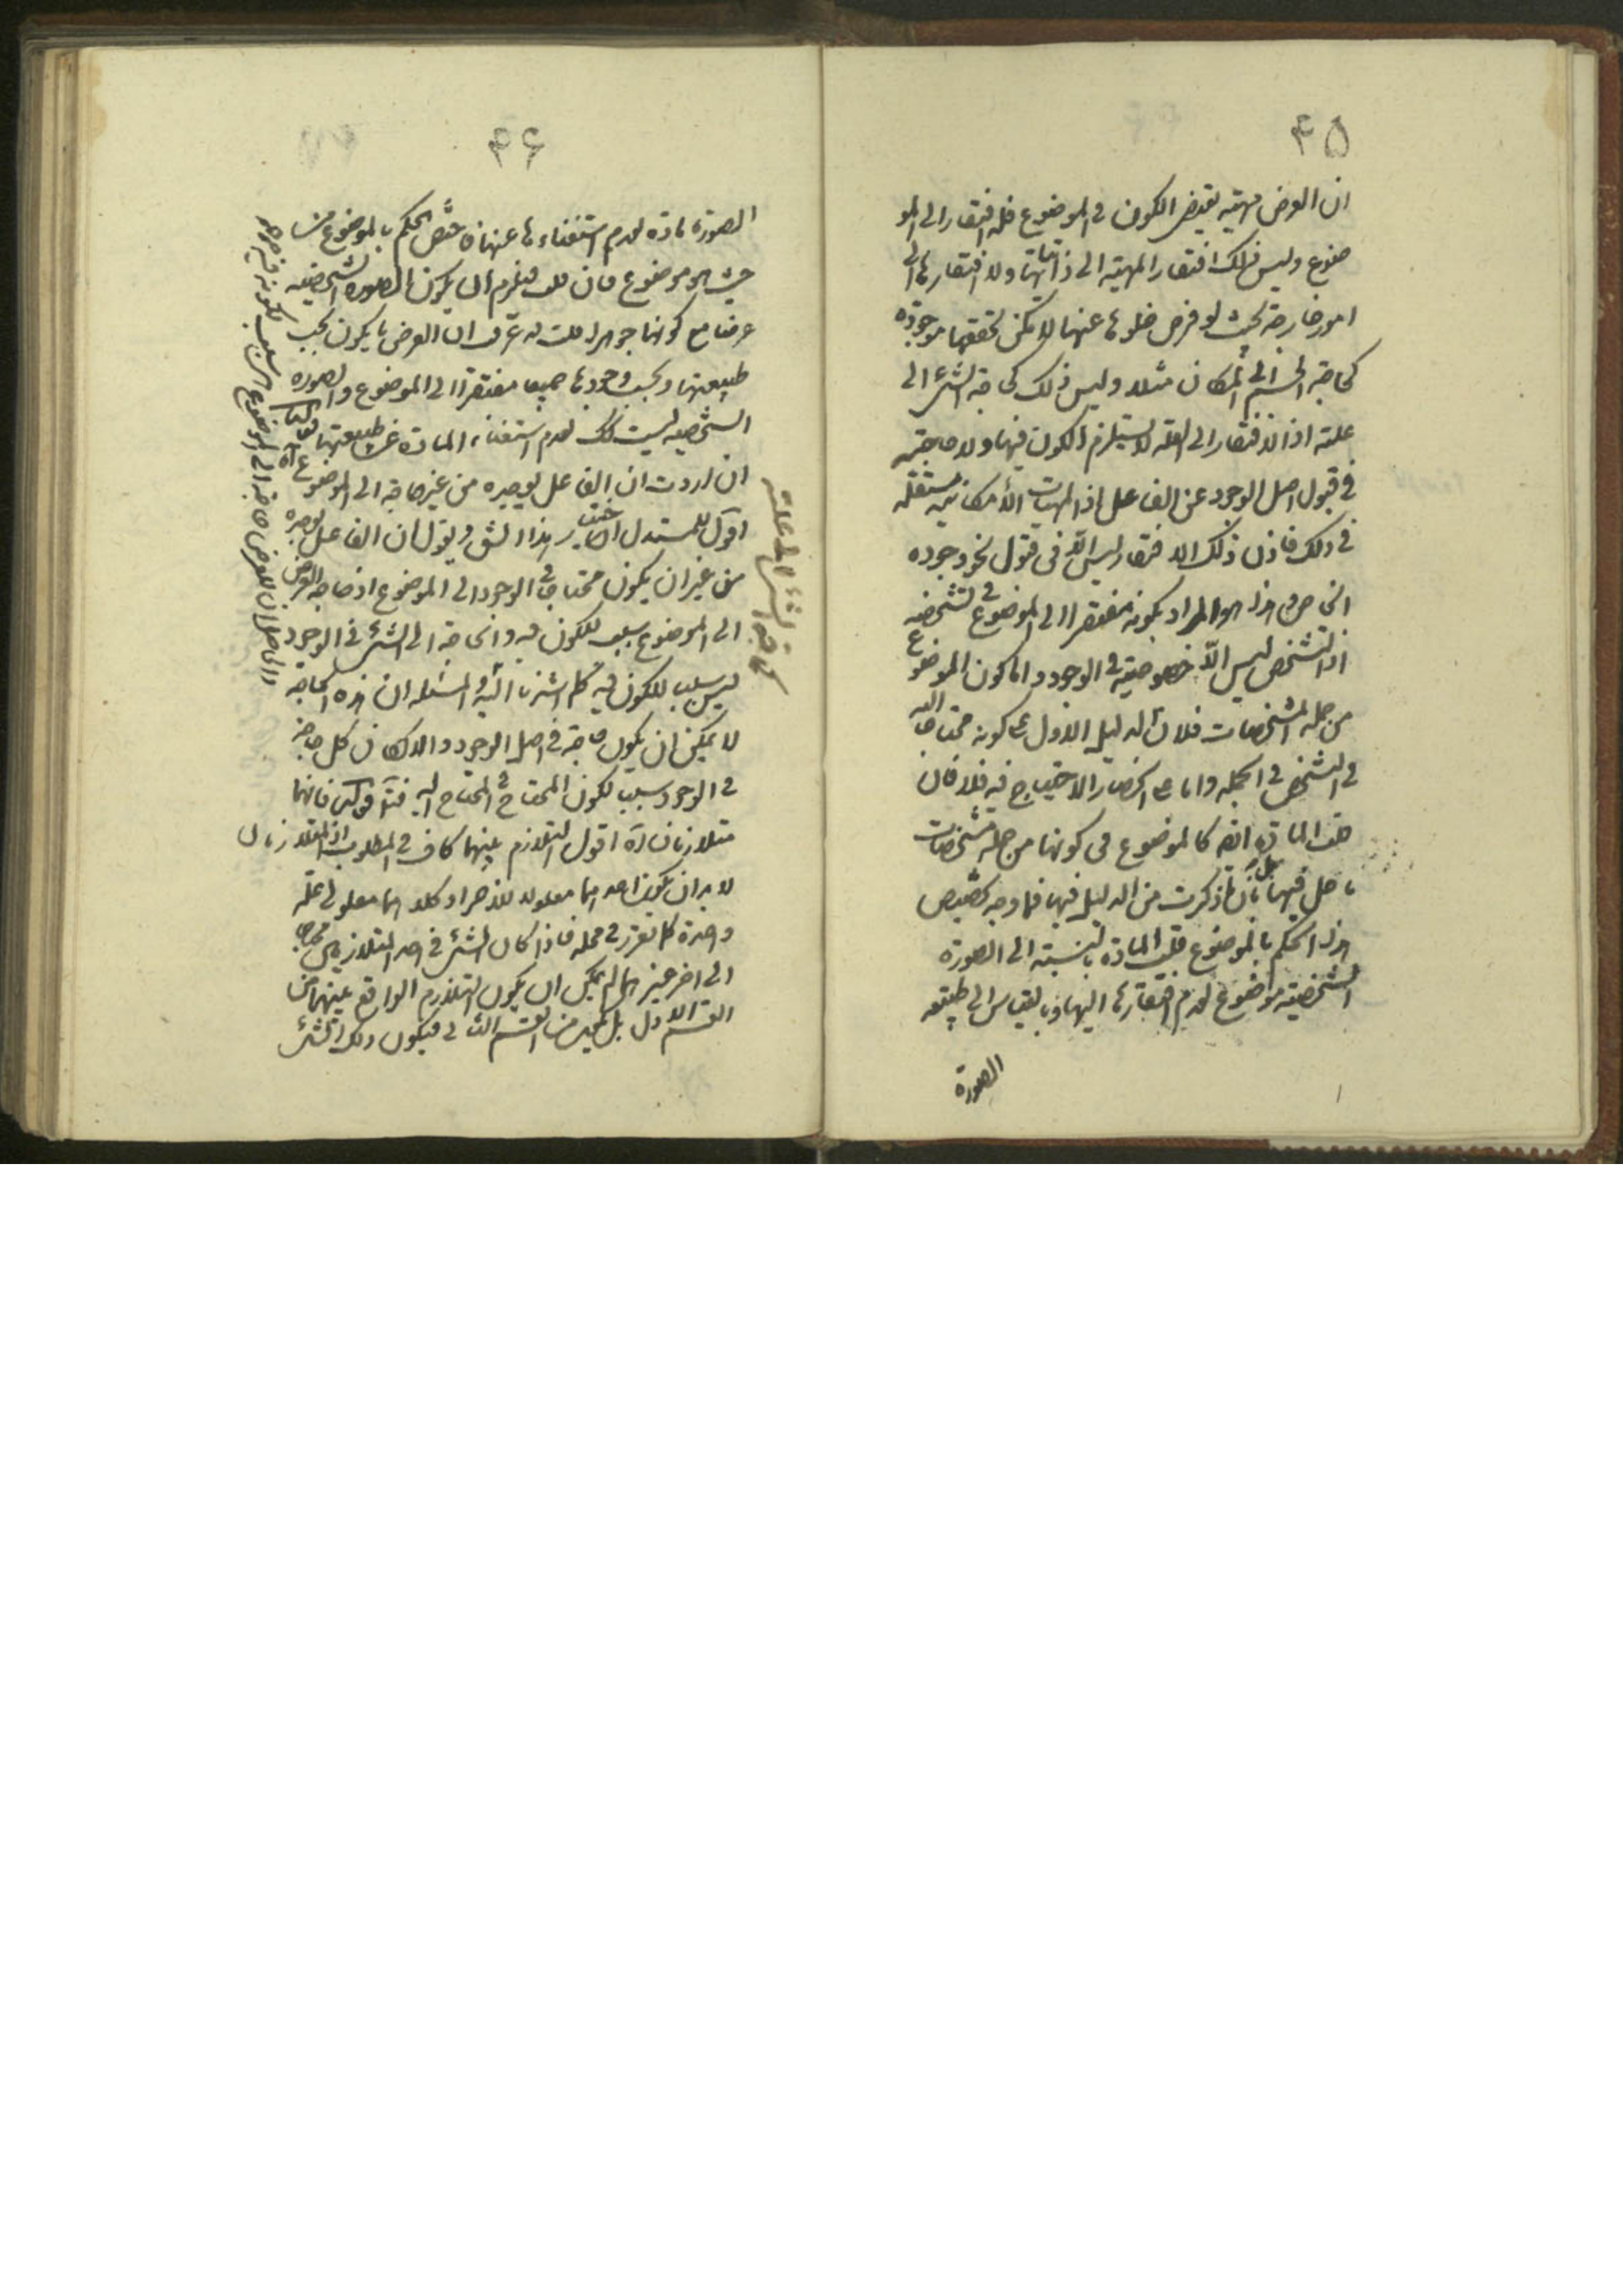 ۴۵
ان العرض مهيته يقتضى الكون فى الموضوع فله افتقار الى المو
ضوع وليس ذلك افتقار المهية الى ذاتياتها ولا افتقارها الى
امور خارجة بحيث لو فرض خلوها عنها لا يمكن تحققها موجودة
كحاجة الجسم الى المكان مثلا وليس ذلك كحاجة الشئ الى
علته اذ الافتقار الى العلة لا يستلزم الكون فيها ولا حاجته
فى قبول اصل الوجود عن الفاعل اذ المهيات الامكانية مستقلة
فى ذلك فاذن ذلك الافتقار ليس الا فى قبول نحو وجوده
الخاص وهذا هو المراد بكونه مفتقرا الى الموضوع فى تشخصه
اذ التشخص ليس الا خصوصية فى الوجود واما كون الموضوع
من جملة المشخصات فلان الدليل الاول على كونه محتاجا اليه
فى التشخص فى الجملة واما على انحصار الاحتياج فيه فلا فان
قلت المادة ايضا كالموضوع فى كونها من جملة مشخصات
ما حل فيها بل كان ما ذكرت من الدليل فيها فما وجه تخصيص
هذا الحكم بالموضوع قلت المادة بالنسبة الى الصورة
الشخصية موضوع لعدم افتقارها اليها وبالقياس الى طبيعة
الصورة
۴۶
الصورة مادة لعدم استغناءها عنها فاختص الحكم بالموضوع من
حيث هو موضوع فان قلت فيلزم ان يكون الصورة الشخصية
عرضا مع كونها جوهرا قلت قد عرف ان العرض ما يكون بحسب
طبيعتها وبحسب وجودها جميعا مفتقرا الى الموضوع والصورة
الشخصية ليست كذلك لعدم استغناء المادة عن طبيعتها
ان اردت ان الفاعل يوجده من غير حاجة الى الموضوع آه
اقول للمستدل ان يختار هذا الشق ويقول ان الفاعل يوجده
من غير ان يكون محتاجا فى الوجود الى الموضوع اذ حاجة العرض
الى الموضوع سبب للكون فيه والحاجة الى الشئ فى الوجود
ليس سبب للكون فيه كما اشرنا اليه والمسئلة ان هذه الحاجة
لا يمكن ان يكون حاجة فى اصل الوجود والا لكان كل حاجة
فى الوجود سبب لكون المحتاج فى المحتاج اليه فتأمل قوله فانهما
متلازمان آه اقول التلازم بينهما كاف فى المطلوب اذ المتلازمان
لابد ان يكون احدهما معلولا للاخر او كلاهما معلولى علة
واحدة كما تقرر فى محله فاذا كان الشئ فى احد المتلازمين محتاجا
الى اخر غيرهما لم يمكن ان يكون التلازم الواقع بينهما من
القسم الاول بل يكون من القسم الثانى فيكون ذلك الشئ
كحاجة الشئ الى علته